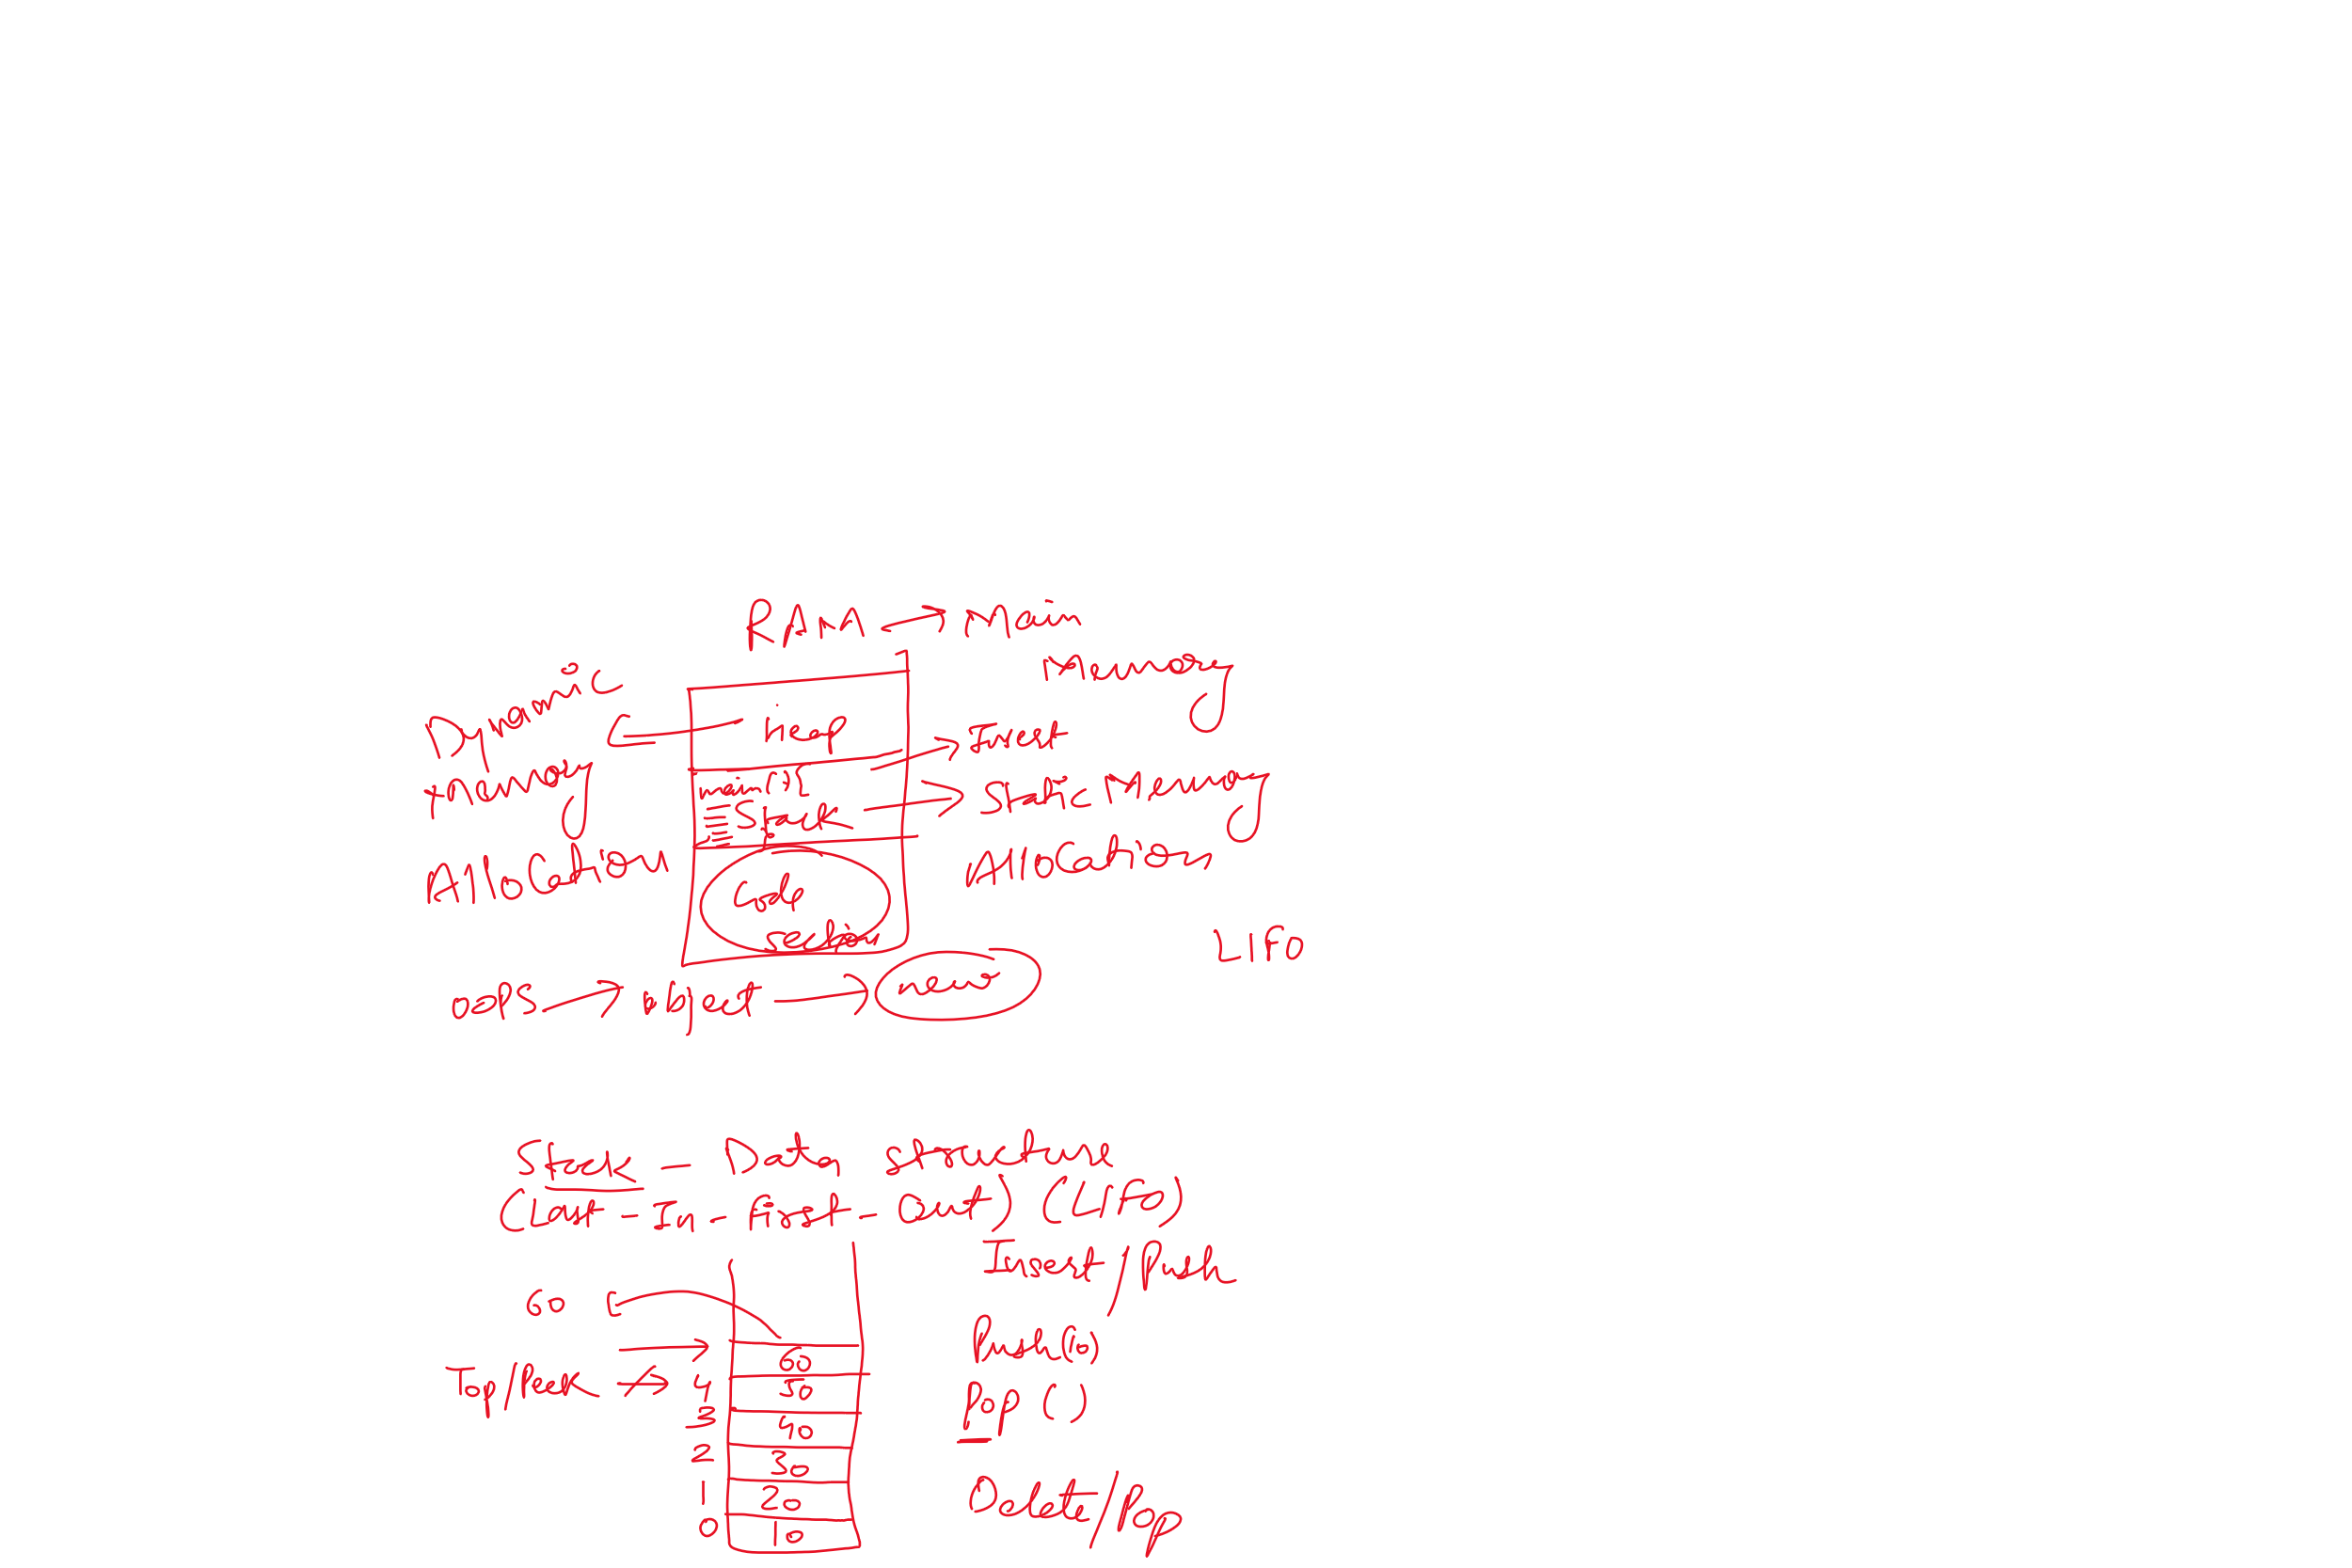 RAM → Main
Memory
Dynamic
Memory
Allocation
Heap
Fast
main()
Stack
Static Memory
Allocation
Code
Section
LIFO
oops → object → new
Stack - Data structure
(Last - In - First - Out) (LIFO)
Insert / Push
60
Push(60)
60
Top/Peek →
4 50
Pop()
3 40
2 30
1 20
Delete/Pop
0 10